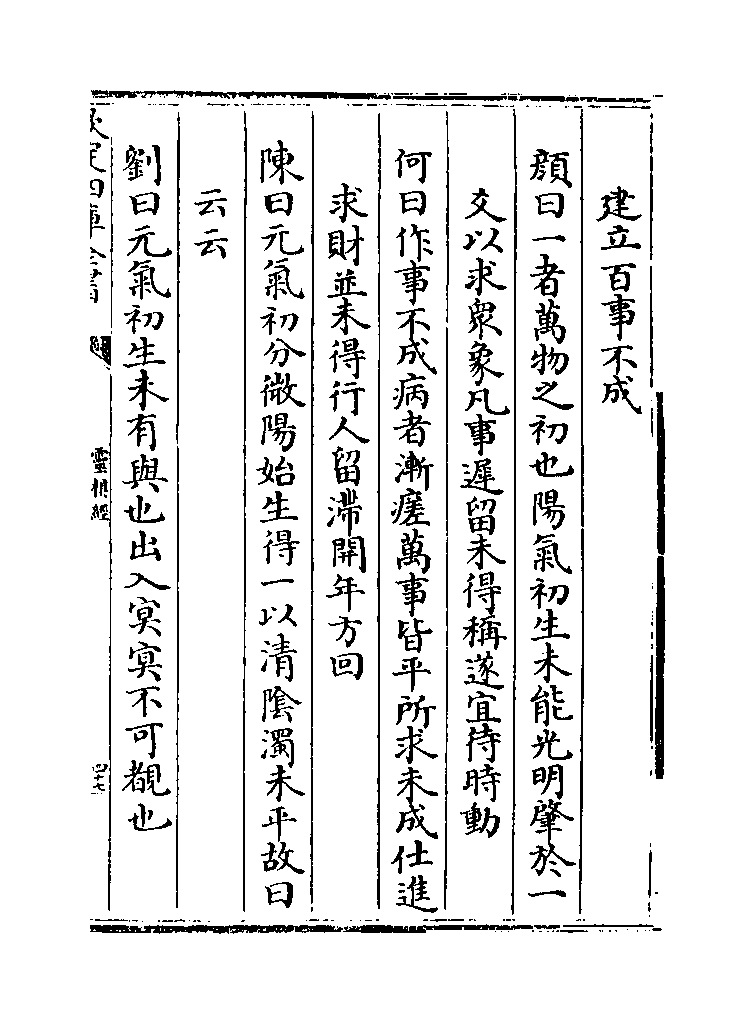 建立百事不成
顔曰一者萬物之初也陽氣初生未能光明肇於一
爻以求衆象凡事遲留未得稱遂宜待時動
何曰作事不成病者漸瘥萬事皆平所求未成仕進
求財並未得行人留滯開年方回
陳曰元氣初分微陽始生得一以清隂濁未平故曰
云云
劉曰元氣初生未有與也出入冥冥不可覩也
欽定四庫全書
靈棋經
四十七